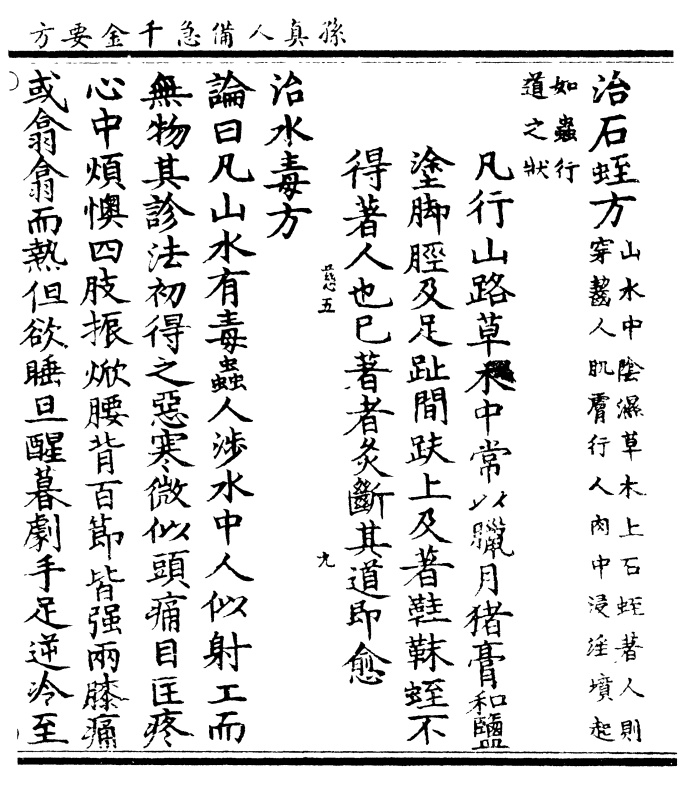 孫真人備急千金要方
治石蛭方山水中陰濕草木上石蛭著人則穿齧人肌膚行人肉中浸淫墳起
如蟲行道之狀
凡行山路草木中常以臘月猪膏和鹽
塗脚脛及足趾間趺上及著鞋韈蛭不
得著人也已著者灸斷其道即愈
慈五
九
治水毒方
論曰凡山水有毒蟲人涉水中人似射工而
無物其診法初得之惡寒微似頭痛目匡疼
心中煩懊四肢振焮腰背百節皆强兩膝痛
或翕翕而熱但欲睡旦醒暮劇手足逆冷至